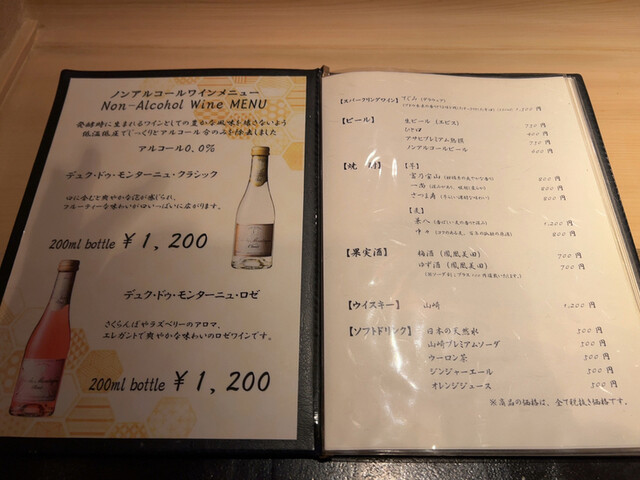 ノンアルコールワインメニュー
Non-Alcohol Wine MENU
発酵時に生まれるワインとしての豊かな風味を壊さないよう
低温低圧でじっくりとアルコール分のみを除去しました
アルコール0.0%
デュク・ドゥ・モンターニュ・クラシック
口に含むと爽やかな泡が感じられ、
フルーティーな味わいが口いっぱいに広がります。
200ml bottle ￥1,200
デュク・ドゥ・モンターニュ・ロゼ
さくらんぼやラズベリーのアロマ、
エレガントで爽やかな味わいのロゼワインです。
200ml bottle ￥1,200
【スパークリングワイン】
【ビール】 生ビール (ヱビス) 750 円
750 円
ノンアルコールビール 600 円
【焼 酎】 【芋】
富乃宝山 800 円
800 円
さつま寿 800 円
【麦】
1,200 円
中々 800 円
【果実酒】 梅酒 (鳳凰美田) 700 円
ゆず酒 (鳳凰美田) 700 円
【ウイスキー】 山崎 1,200 円
【ソフトドリンク】 日本の天然水 500 円
山崎プレミアムソーダ 500 円
ウーロン茶 500 円
ジンジャーエール 500 円
オレンジジュース 500 円
※商品の価格は、全て税抜き価格です。